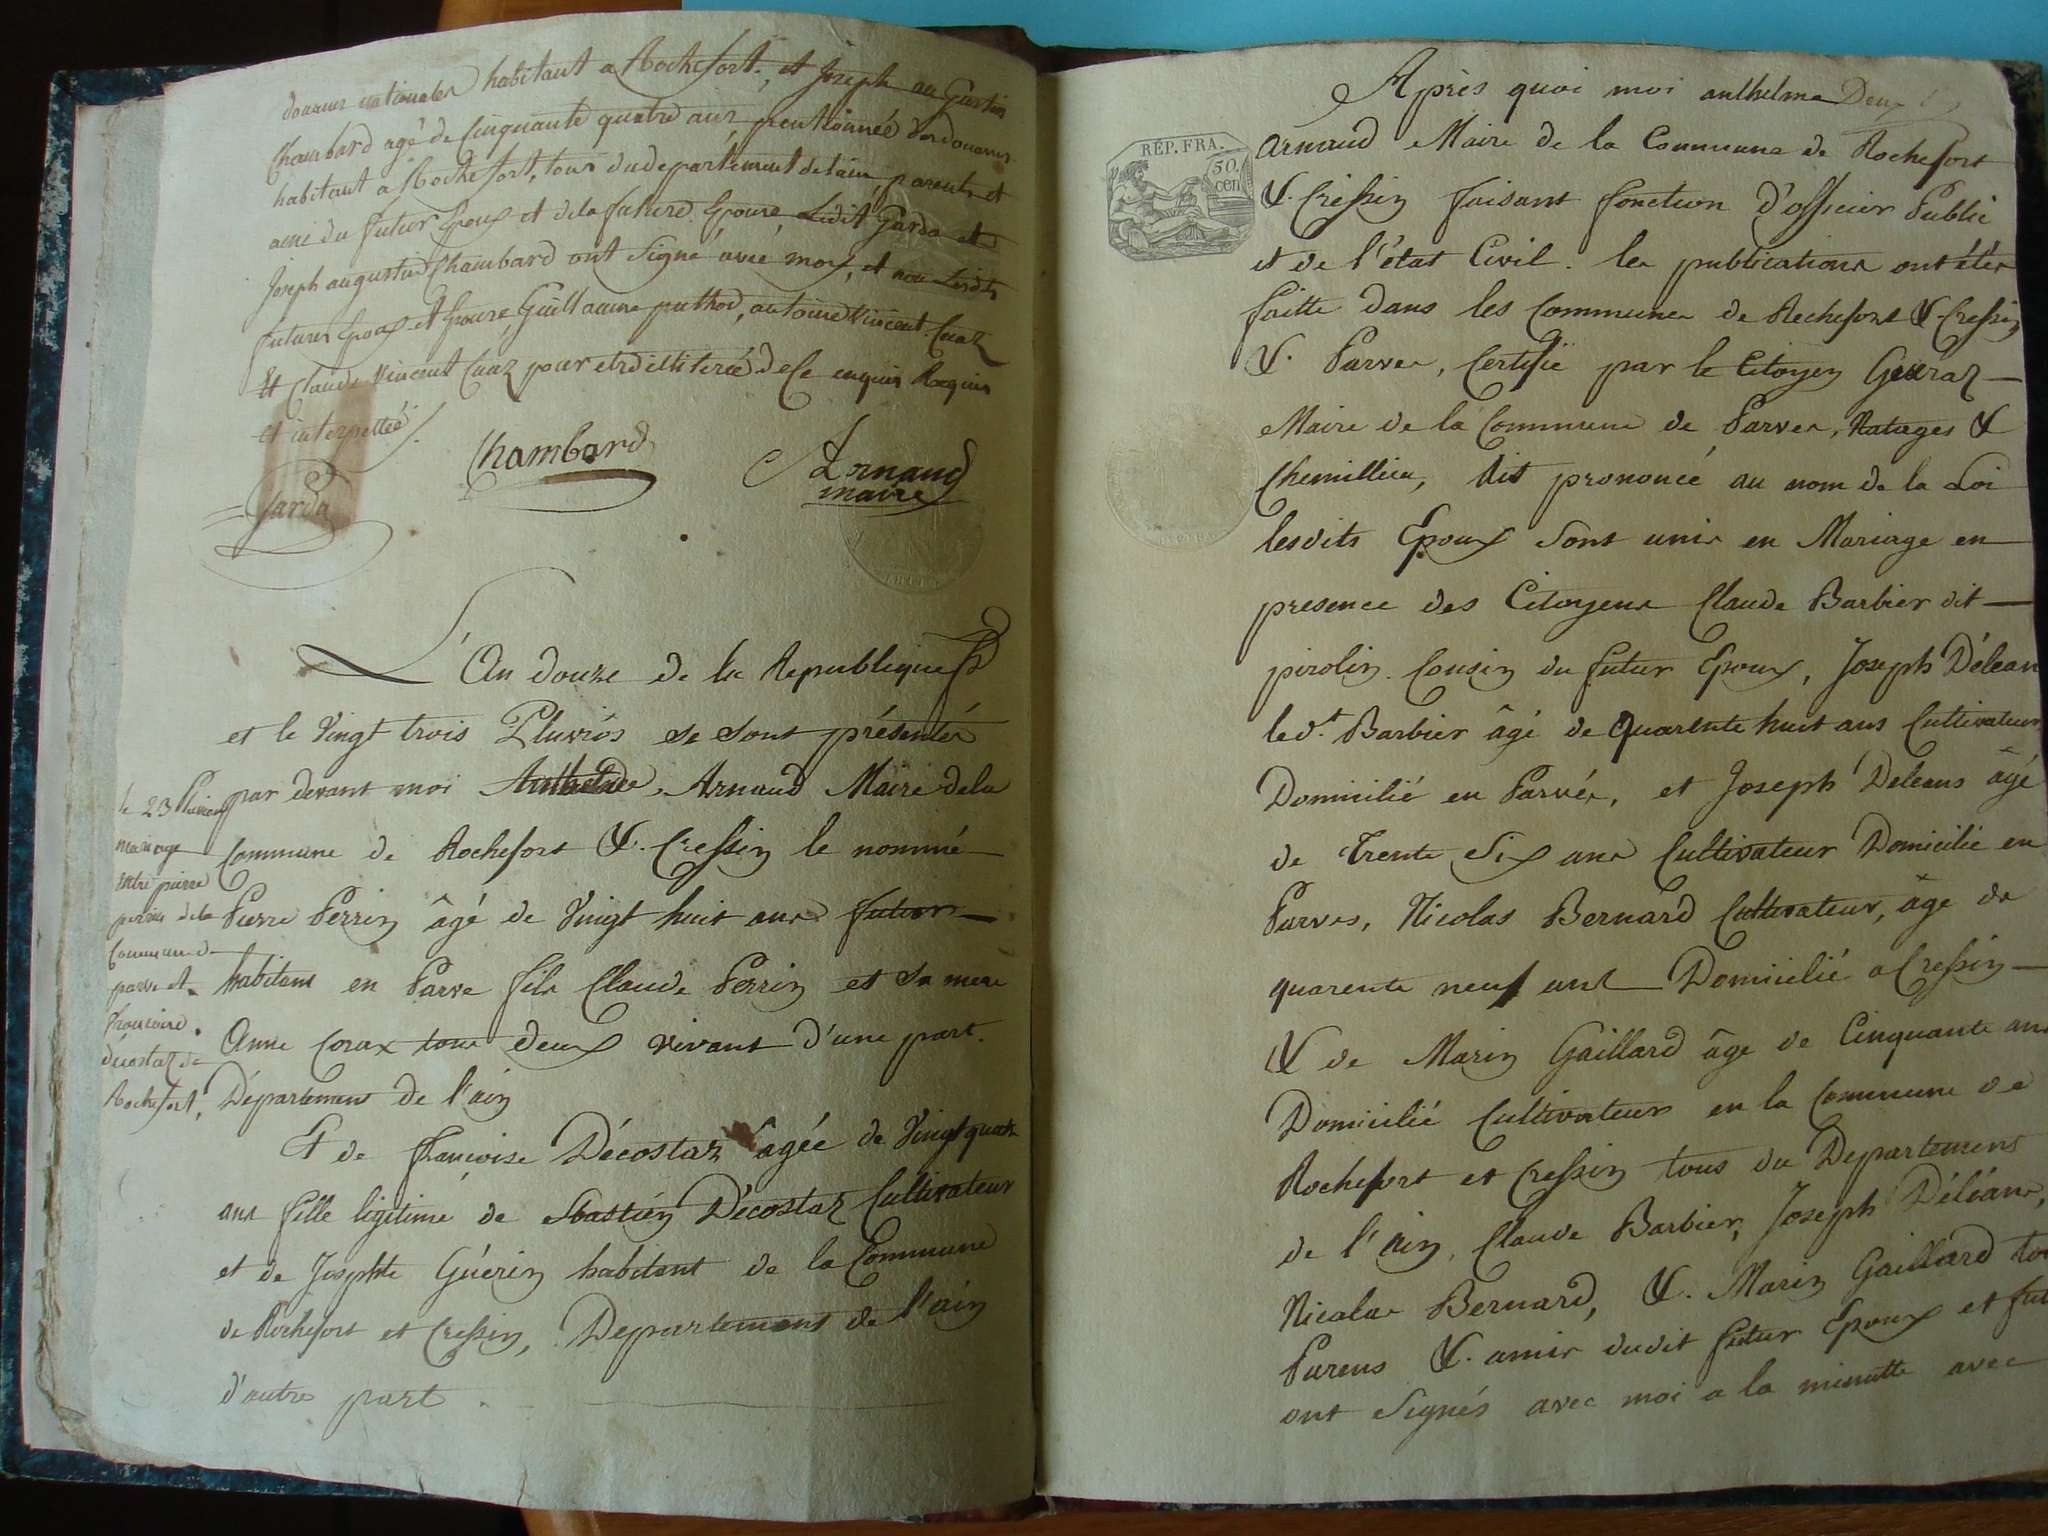 douanes nationales habitant a Rochefort, et Joseph augustin
Chambard agé de Cinquante quatre ans pentionnée des douanes
habitant a Rochefort, tous du departement delain, parents et
ami du futur Epoux et dela future Epouse Ledit Garda et
Joseph augustin Chambard ont Signé avec moy, et non Lesdits
futurs Epoux et Epouse, Guillaume puthod, antoine Vincent Cuaz
Et Claude Vincent Cuaz pour etre illiterée de Ce enquis Requis
et interpellée
Garda
Chambard
Arnaud
maire
L'An douze de la Republique
et le Vingt trois Pluviôs se sont présentés
par devant moi Arnaud Maire dela
Commune de Rochefort &. Cressin le nommé
Pierre Perrin âgé de Vingt huit ans futur
habitant en Parve fils Claude Perrin et Sa mere
Anne Corax tous deux vivant d'une part.
Département de l'ain
Et de françoise Décostaz agée de Vingt quatre
ans fille ligitime de Sbastien Décostaz Cultivateur
et de Josephte Guérin habitant de la Commune
de Rochefort et Cressin, Departement de l'ain
d'autre part
le 23 Pluviose
mariage
entre pierre
perrin dela
Commune d
parve et
francoise
décostaz de
Rochefort,
Après quoi moi anthelme
RÉP. FRA.
50.
cen
Arnaud Maire de la Commune de Rochefort
&. Cressin faisant fonction d'officier Public
et de l'état Civil. les publications ont étés
faitte dans les Communes de Rochefort &. Cressin
&. Parves, Certifié par le Citoyen Guéraz
Maire de la Commune de Parves, Natages &
Chemillieu, Ait prononcé au nom de la Loi
lesdits Epoux Sont unis en Mariage en
presence des Citoyens Claude Barbier dit
pirolin. Cousin du futur Epoux, Joseph Délean
led.t Barbier âgé de Quarente huit ans Cultivateur
Domicilié en Parvés, et Joseph Deleans âgé
de Trente Six ans Cultivateur Domicilié en
Parves, Nicolas Bernard Cultivateur, âge de
quarente neuf ans Domicilié a Cressin
& de Marin Gaillard âge de Cinquante ans
Domicilié Cultivateur en la Commune de
Rochefort et Cressin tous du Departement
de l'ain, Claude Barbier, Joseph Déléans,
Nicolas Bernard, &. Marin Gaillard
Parens &. amis dudit futur Epoux et
ont Signés avec moi a la minutte avec